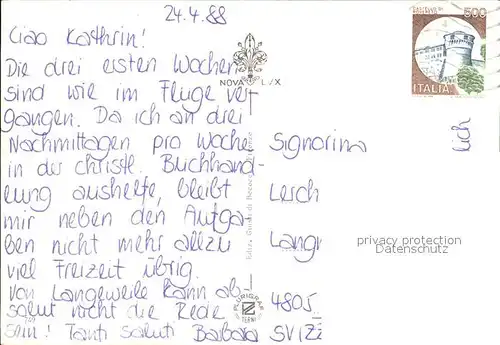 24.4.88
Ciao Kathrin!
Die drei ersten Wochen
sind wie im Fluge ver-
gangen. Da ich an drei
Nachmittagen pro Woche
in der christl. Buchhand-
lung aushelfe, bleibt
mir neben den Aufga-
ben nicht mehr allzu
viel Freizeit übrig.
Von Langeweile kann ab-
solut nicht die Rede
sein! Tanti saluti Barbara
NOVA LUX
PLURIGRAF
TERNI
CASTELLO DI
ROVERETO
500
ITALIA
Signorina
Lesch
Lang
4805
SVIZZ
lich
privacy protection
Datenschutz